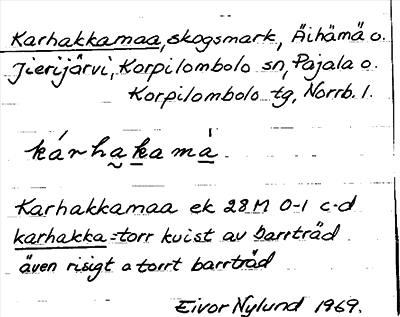 Karhakkamaa, skogsmark, Äihämä o.
Jierijärvi, Korpilombolo sn, Pajala o.
Korpilombolo tg, Norrb. l.
kárhak̲amá̲
Karhakkamaa ek 28M 0-1 c-d
karhakka = torr kvist av barrträd
även risigt o torrt barrträd
Eivor Nylund 1969.